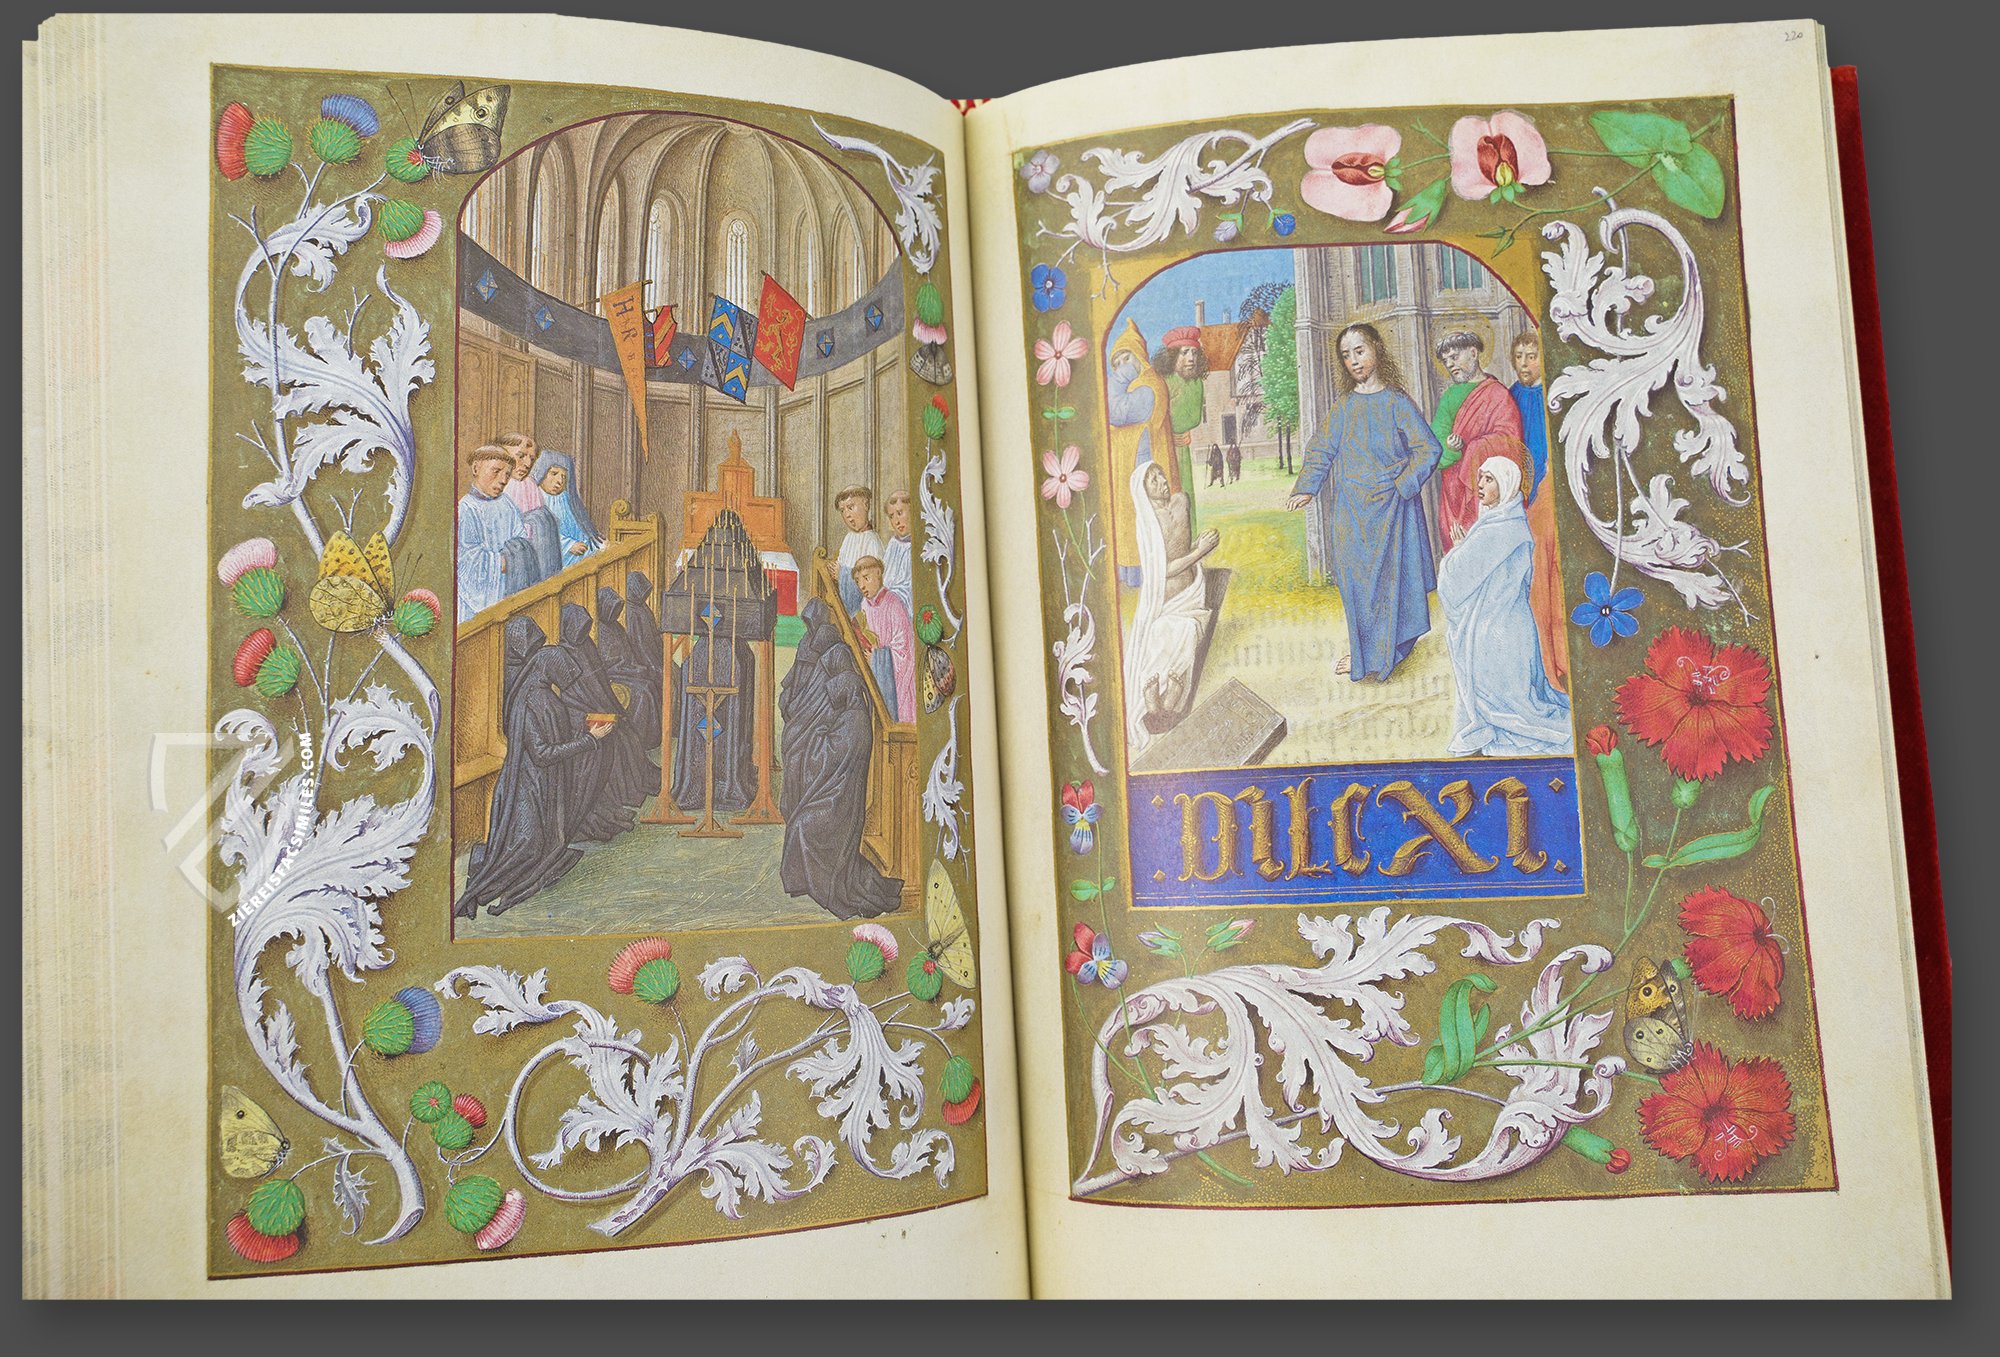 220
H R
DILEXI
ZIEREISFACSIMILES.COM